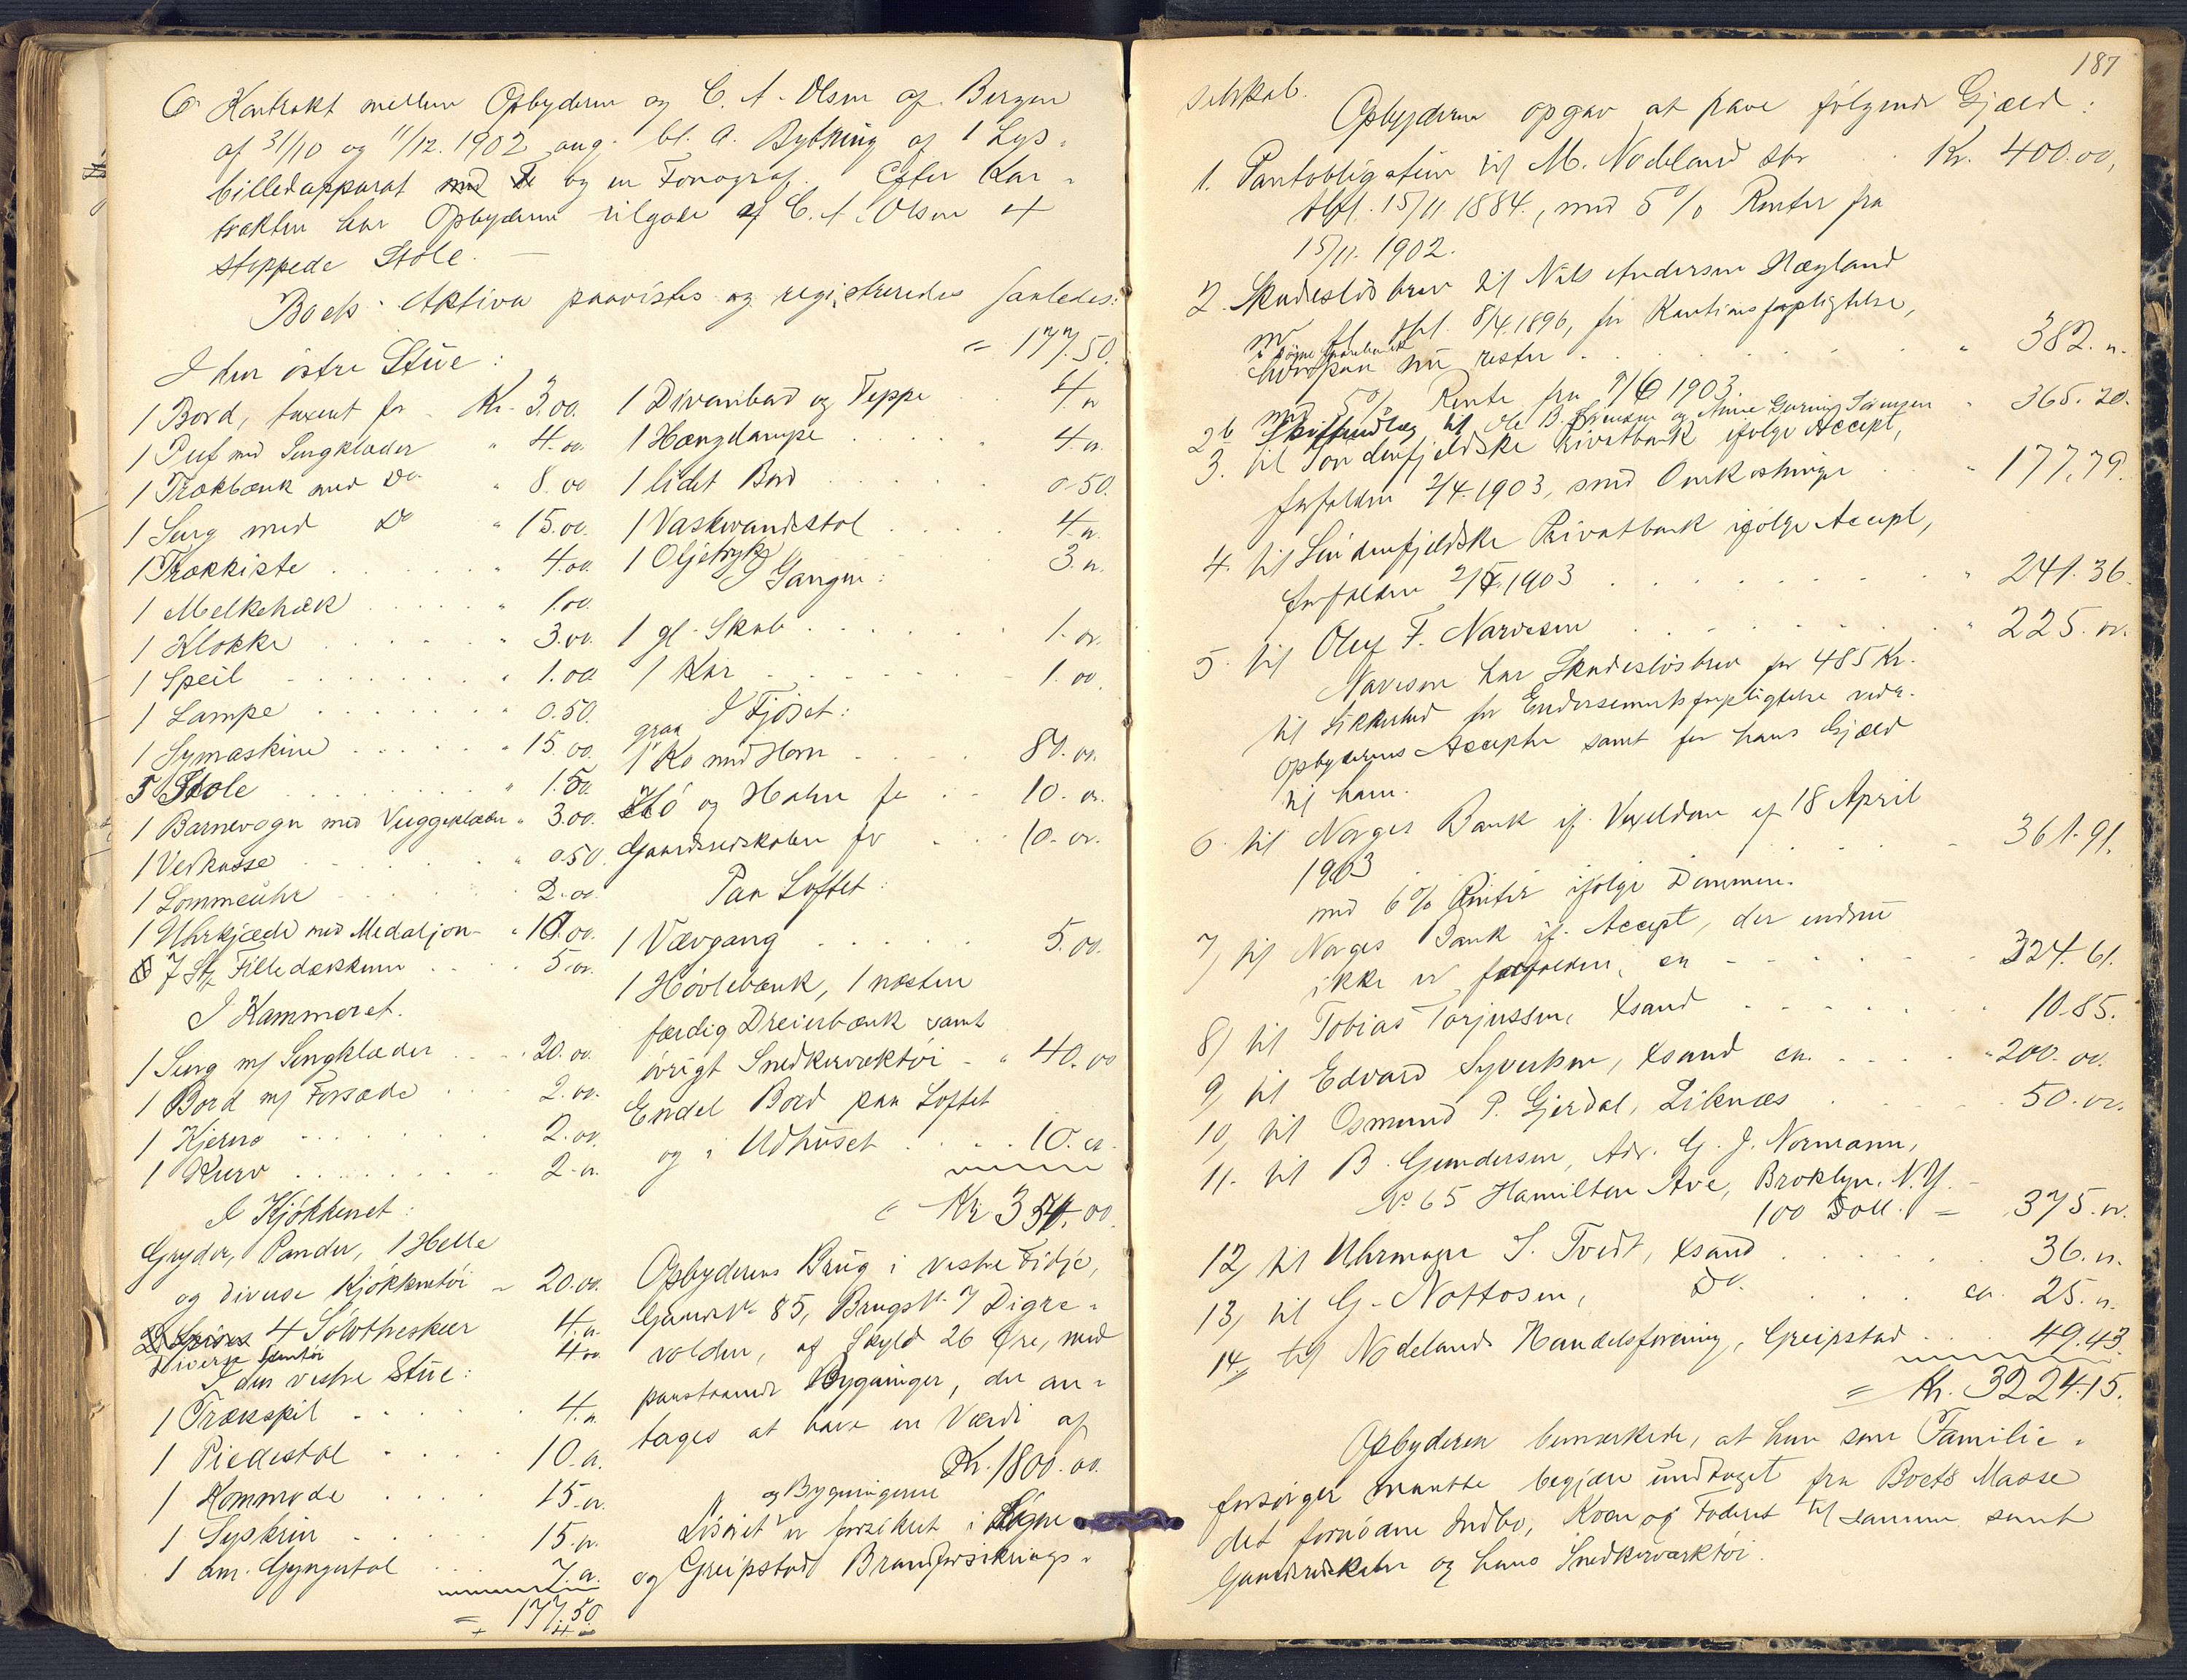 6 Kontrakt mellem Opbyderen og C. A. Olsen af Bergen
af 31/10 og 11/12. 1902 ang. bl. a. Bytning af 1 Lys-
billedapparat og en Fonograf. Efter Kon-
trakten har Opbyderen tilgode af C. A. Olsen 4
stoppede Stole. —
Boets Aktiva paavistes og registreredes saaledes:
I den østre Stue:
1 Bord, taxeret for Kr. 3.00.
1 Puf med Sengklæder " 4.00.
1 Trækbænk med Do " 8.00
1 Seng med Do " 15.00.
1 Trækkiste " 4.00.
1 Melkehæk " 1.00.
1 Klokke " 3.00.
1 Speil " 1.00
1 Lampe " 0.50.
1 Symaskine " 15.00.
5 Stole " 1.50.
1 Barnevogn med Vuggeklæder " 3.00.
1 Vedkasse " 0.50.
1 Lommeuhr 2.00.
1 Uhrkjæde med Medaljon " 10.00.
7 Stk Filledækkener 5.00.
I Kammeret.
1 Seng m/ Sengklæder 20.00.
1 Bord m/ Forsæde 2.00.
1 Kjerne 2.00.
1 Kurv 2.00.
I Kjøkkenet:
Gryder, Pander, 1 Helle
og diverse Kjøkkentøi - 20.00.
4 Sølvtheskeer 4.00.
Diverse 4.00
I den vestre Stue:
1 Trækspil 4.00
1 Piedestal 10.00.
1 Kommode 15.00.
1 Syskrin 15.00.
1 am. Gyngestol 7.00.
= 177.50
= 177.50.
1 Divanbord og Teppe 4.00
1 Hængelampe 4.00.
1 lidet Bord 0.50.
1 Vaskevandsstol 4.00.
1 Oljetryk 3.00.
I Gangen:
1 gl. Skab 1.00.
1 Kar 1.00.
I Fjøset:
graa
1 Ko med Horn 80.00.
og Halm for 10.00.
Gaardsredskaber for 10.00.
Paa Loftet:
1 Vævgang 5.00.
1 Høvlebænk, 1 næsten
færdig Dreierbænk samt
øvrigt Snedkerværktøi - " 40.00
Endel Bord paa Loftet
og i Udhuset 10.00.
Opbyderens Brug i vestre Fidje,
Gaards No 85, Brugs No 7 Digre-
volden, af Skyld 26 Øre, med
paastaaende Bygninger, der an-
tages at have en Værdi af
Kr. 1800.00.
og Bygningerne
Løsøret er forsikret i Søgne
og Greipstad Brandforsikrings-
187
selskab.
Opbyderen opgav at have følgende Gjæld:
1. Pantobligation til M. Nodeland Kr. 400.00,
tbl. 15/11. 1884., med 5% Renter fra
15/11. 1902.
2. Skadesløsbrev til Nils Andersen Hægland
m. fl. tbl. 8/4. 1896, for Kautionsforpligtelse,
i Søgne Sparebank
hvorpaa nu rester " 382.00.
med 5% Rente fra 9/6 1903
2b Skifteudlæg til Ole B. og Anne Gurine Sørensen " 365.20.
3. til Søndenfjeldske Privatbank ifølge Accept,
forfalden 2/4. 1903, med Omkostninger " 177.79.
4. til Søndenfjeldske Privatbank ifølge Accept,
forfalden 2/5. 1903 " 241.36.
5. til Oluf F. Narvesen " 225.00.
Narvesen har Skadesløsbrev for 485 Kr.
til Sikkerhed for Endossementsforpligtelse vedr.
Opbyderens Accepter samt for hans Gjæld
til ham.
6. til Norges Bank if. Vexeldom af 18 April
1903 361.91.
med 6% Renter ifølge Dommen.
7, til Norges Bank if. Accept, der endnu
ikke er forfalden, ca 324.61.
8) til Tobias Torjussen, Xsand 10.85.
9, til Edvard Syvertsen, Xsand ca. " 200.00.
10, til Osmund P. Gjerdal, Liknæs 50.00.
11. til B. Gundersen, Adr. G. J. Normann,
No 65 Hamilton Ave, Broklyn. N.Y. -
100 Doll. = 375.00.
12, til Uhrmager S. Tvedt, Xsand 36.00.
13, til G. Nottosen, Do. ca. 25.00.
14, til Nodelands Handelsforening, Greipstad 49.43.
= Kr. 3224.15.
Opbyderen bemærkede, at han som Familie-
forsørger maatte begjære undtaget fra Boets Masse
det fornødne Indbo, Koen og Foderet til samme samt
Gaardsredskaber og hans Snedkerværktøi.